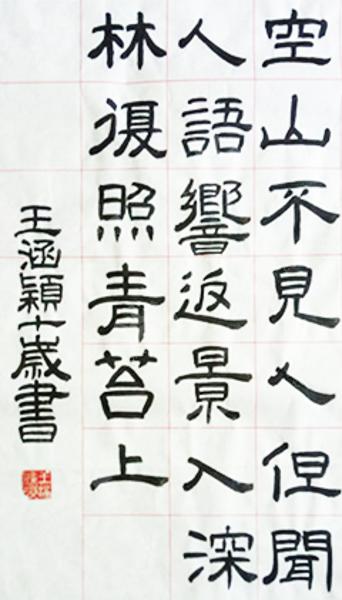 空山不見人但聞
人語響返景入深
林復照青苔上
王涵穎十歲書